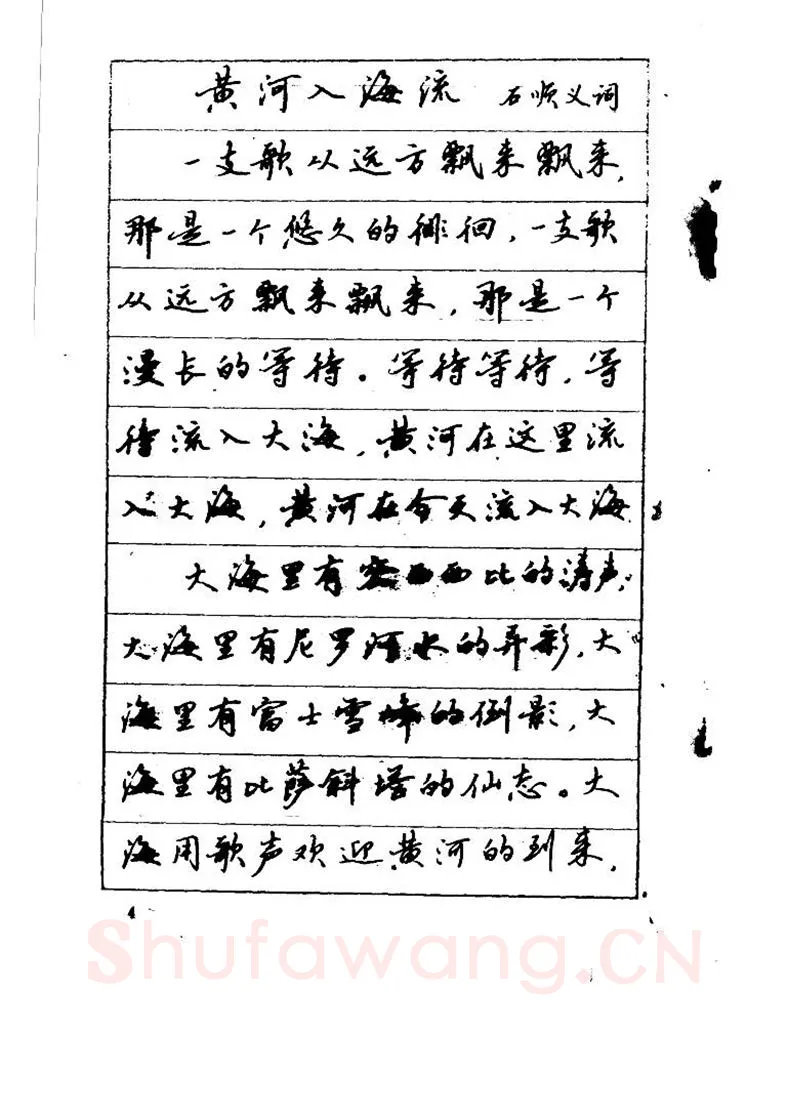 黄河入海流 石顺义词
一支歌从远方飘来飘来,
那是一个悠久的徘徊,一支歌
从远方飘来飘来,那是一个
漫长的等待。等待等待,等
待流入大海,黄河在这里流
入大海,黄河在今天流入大海
大海里有密西西比的涛声,
大海里有尼罗河水的异彩,大
海里有富士雪峰的倒影,大
海里有比萨斜塔的仙态。大
海用歌声欢迎黄河的到来,
4
Shufawang.CN